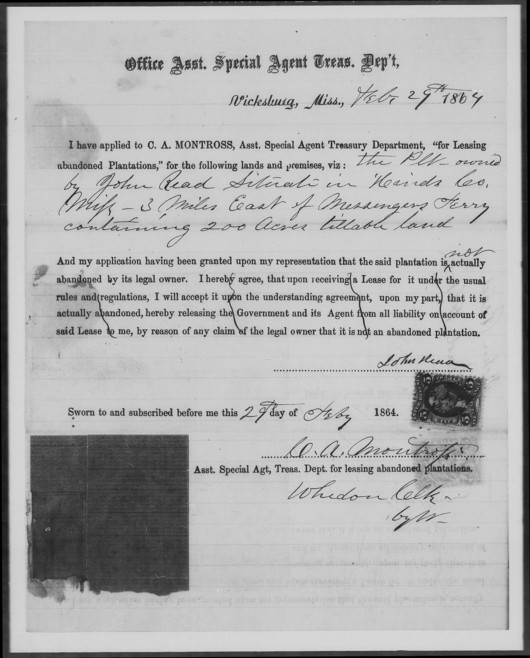 Office Asst. Special Agent Treas. Dep't,
Vicksburg, Miss., Feby 29th 1864
I have applied to C. A. MONTROSS, Asst. Special Agent Treasury Department, "for Leasing
abandoned Plantations," for the following lands and premises, viz: the Plt- owned
by John Read Situate in Hinds Co.
Miss - 3 Miles East of Messengers Ferry
containing 200 Acres tillable land
not
And my application having been granted upon my representation that the said plantation is actually
abandoned by its legal owner. I hereby agree, that upon receiving a Lease for it under the usual
rules and regulations, I will accept it upon the understanding agreement, upon my part, that it is
actually abandoned, hereby releasing the Government and its Agent from all liability on account of
said Lease to me, by reason of any claim of the legal owner that it is not an abandoned plantation.
John Read
Sworn to and subscribed before me this 29th day of Feby 1864.
C. A. Montross
Asst. Special Agt, Treas. Dept. for leasing abandoned plantations.
Whedon Clk-
by W-